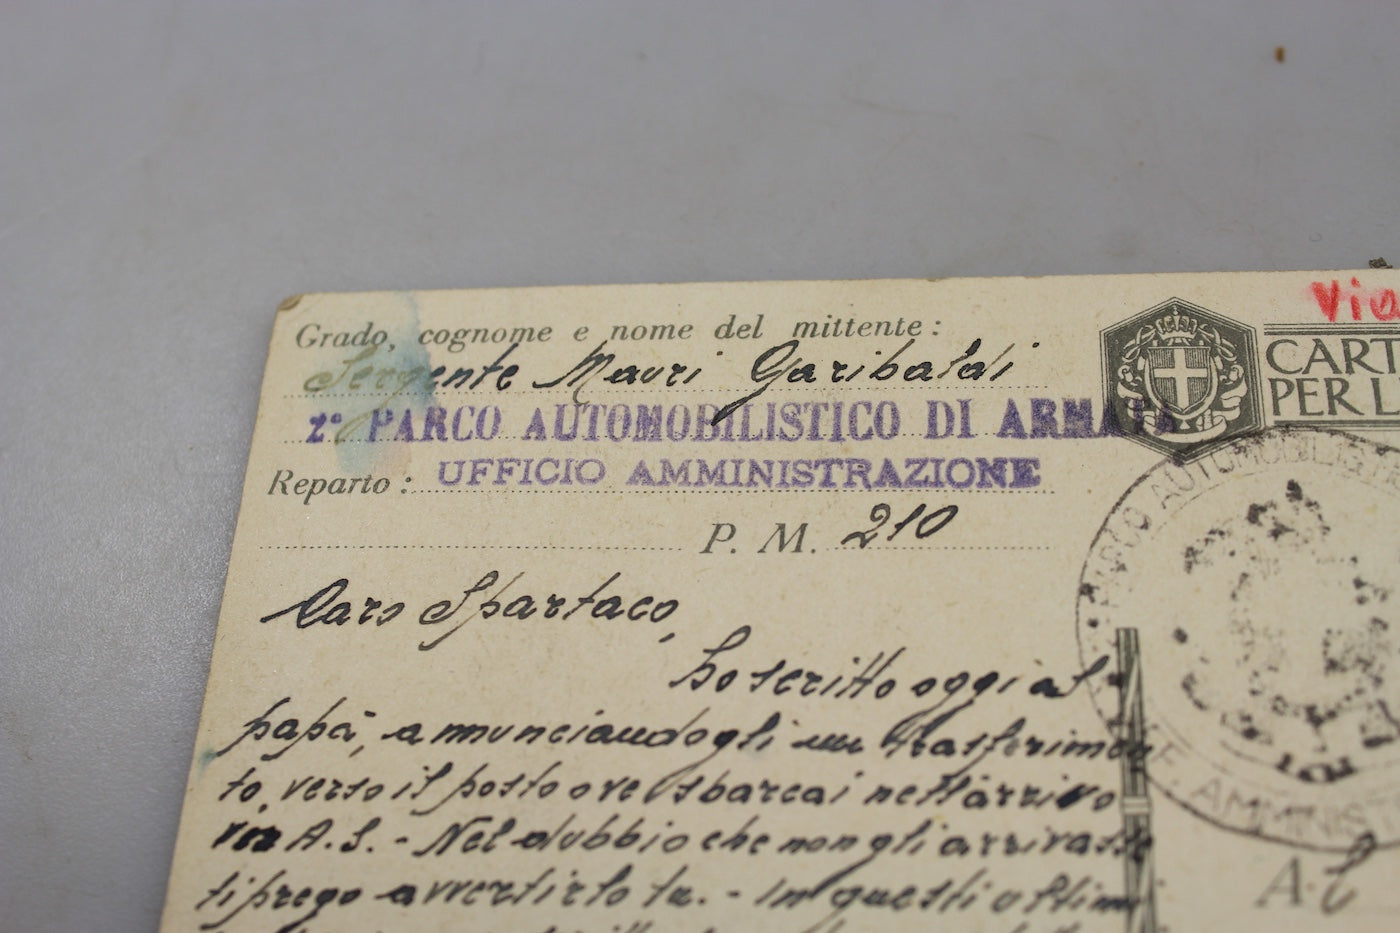 Grado, cognome e nome del mittente:
Sergente Mauri Garibaldi
2º PARCO AUTOMOBILISTICO DI ARMATA
Reparto: UFFICIO AMMINISTRAZIONE
P. M. 210
Caro Spartaco,
ho scritto oggi al
papà, annunciandogli un trasferimen
to, verso il posto ove sbarcai nell'arrivo
A.S. - Nel dubbio che non gli arrivasse
ti prego avvertirlo tu. - In questi ultimi
Via
CART
PER L
PARCO AUTOMOBILISTI
UFF. AMMINIS
A